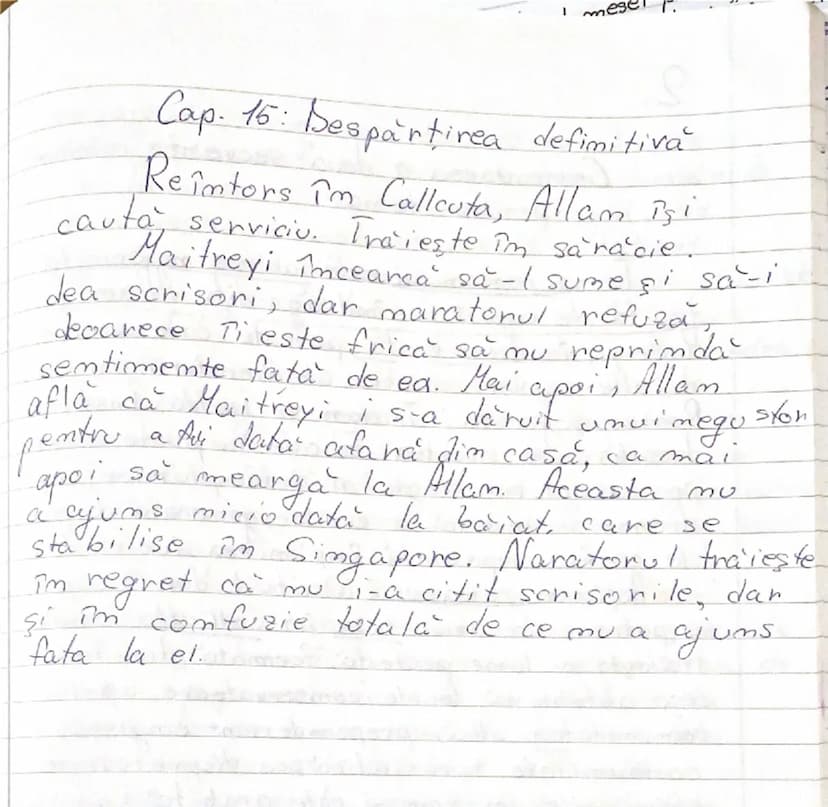 mesei
Cap. 15: Despărțirea definitivă
Reîntors în Callcuta, Allan își
caută serviciu. Trăiește în sărăcie.
Maitreyi încearcă să-l sune și să-i
dea scrisori, dar maratonul refuză,
deoarece îi este frică să nu reprindă
sentimente fată de ea. Mai apoi, Allan
află că Maitreyi i s-a dăruit unui negustor
pentru a fi dată afară din casă, ca mai
apoi să meargă la Allan. Aceasta nu
a ajuns niciodată la băiat, care se
stabilise în Singapore. Naratorul trăiește
în regret că nu i-a citit scrisorile, dar
și în confuzie totală de ce nu a ajuns
fata la el.